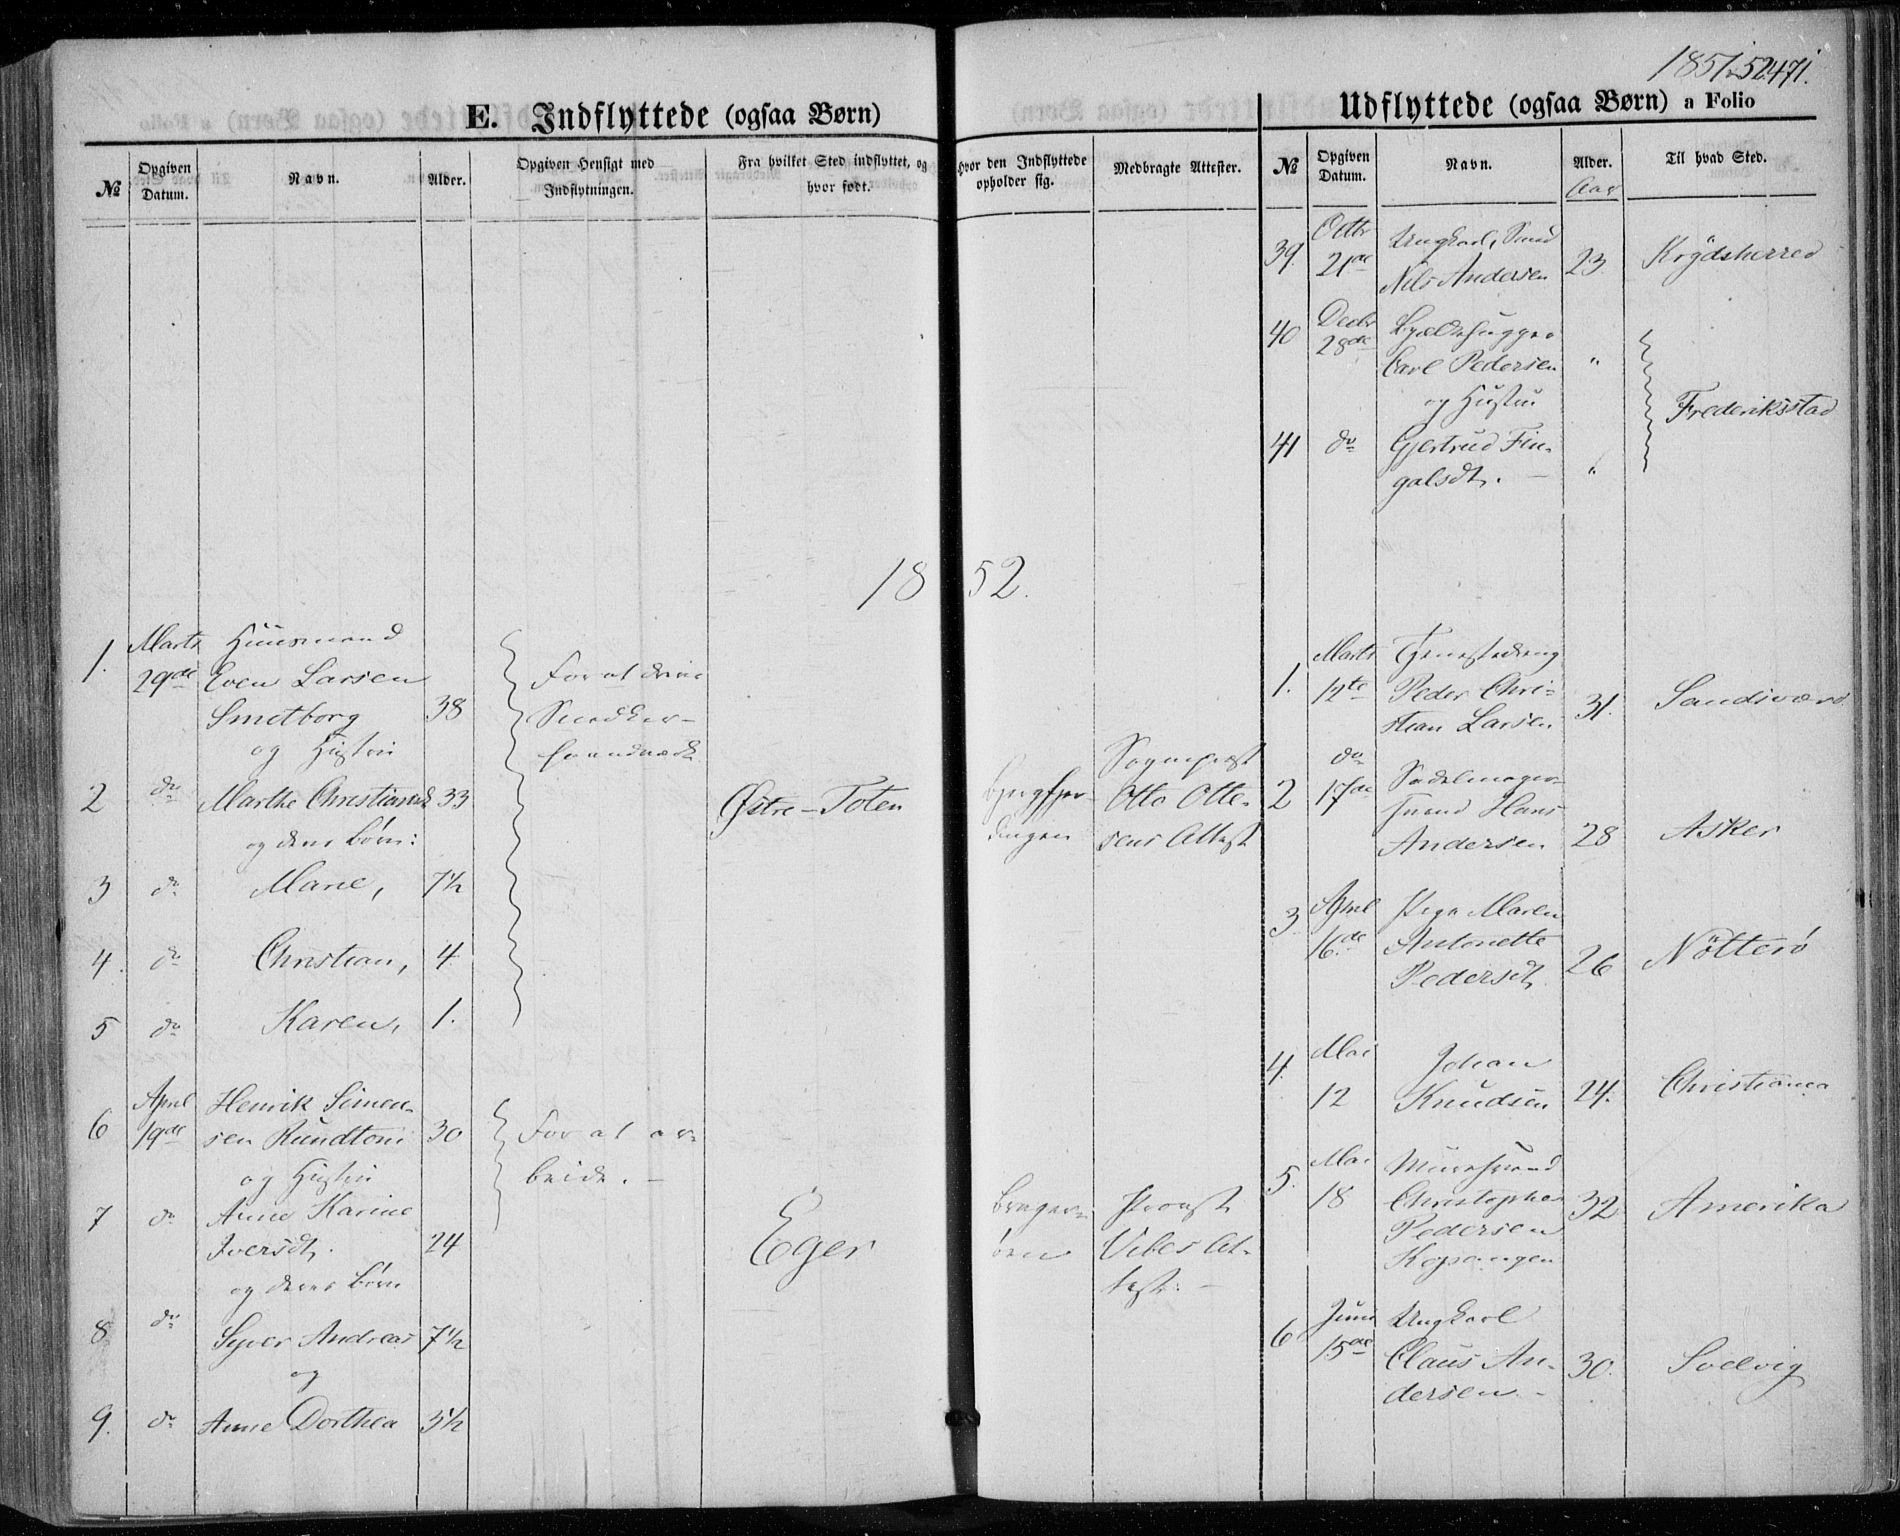 1851-52. 471.
E. Indflyttede (ogsaa Børn)
№
Opgiven Datum.
Navn.
Alder.
Opgiven Hensigt med Indflytningen.
Fra hvilket Sted indflyttet, og hvor født.
Hvor den Indflyttede opholder sig.
Medbragte Attester.
1852.
1. Marts Huusmand
29de Even Larsen
Smetborg 38
og Hustru
For at drive
Snedker-
haandværk
2 do Marthe Christiansd. 33
og deres Børn:
Østre-Toten
Sogneprest
Otto Otte-
sens Attest
3 do Marie, 7½
4. do Christian, 4
5 do Karen, 1.
April Henrik Simen-
6 19de sen Rundtom 30
og Hustru
For at ar-
beide. -
7 do Anne Karine
Iversdt. 24
og deres Børn
Eger
Brager-
øen
Provst
Vibes At-
test: -
8 do Syver Andreas 7½
og
9. do Anne Dorthea 3½
Udflyttede (ogsaa Børn) a Folio
№
Opgiven Datum.
Navn.
Alder.
Aar
Til hvad Sted.
39. Octbr Ungkarl, Smed
21de Nils Andersen 23 Krydsherred
40 Decbr
28de Carl Pedersen "
og Hustru
Frederiksstad
41 do Gjertrud Fin-
galsdt. - "
1. Marts Tjenestedreng
12te Peder Chri-
stian Larsen 31. Sandsværd
2 do
17de Sadelmager-
svend Hans
Andersen 28 Asker
3 April Pige Maren
16de Antonette
Pedersdt. 26 Nötterö
4. Mai Johan
12 Knudsen 24. Christiania
5. Mai Muursvend
18 Christopher 32 Amerika
Pedersen
Kopangen
6 Juni Ungkarl
15de Claus An- 30. Svelvig
dersen -